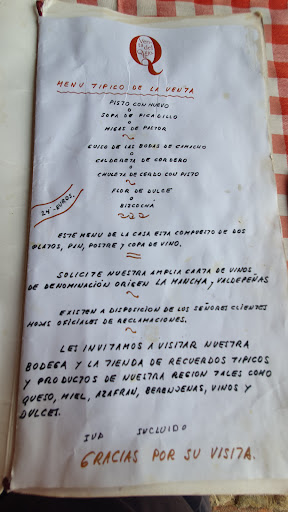 Venta del Quijote
MENU TIPICO DE LA VENTA
PISTO CON HUEVO
O
SOPA DE PICADILLO
O
MIGAS DE PASTOR
GUISO DE LAS BODAS DE CAMACHO
O
CALDERETA DE CORDERO
O
CHULETA DE CERDO CON PISTO
FLOR DE DULCE
O
BIZCOCHÁ
24'-EUROS.
ESTE MENU DE LA CASA ESTA COMPUESTO DE DOS
PLATOS, PAN, POSTRE Y COPA DE VINO.
SOLICITE NUESTRA AMPLIA CARTA DE VINOS
DE DENOMINACIÓN ORIGEN LA MANCHA Y VALDEPEÑAS
EXISTEN A DISPOSICION DE LOS SEÑORES CLIENTES
HOJAS OFICIALES DE RECLAMACIONES.
LES INVITAMOS A VISITAR NUESTRA
BODEGA Y LA TIENDA DE RECUERDOS TIPICOS
Y PRODUCTOS DE NUESTRA REGION TALES COMO
QUESO, MIEL, AZAFRAN, BERENJENAS, VINOS Y
DULCES.
IVA INCLUIDO
GRACIAS POR SU VISITA.